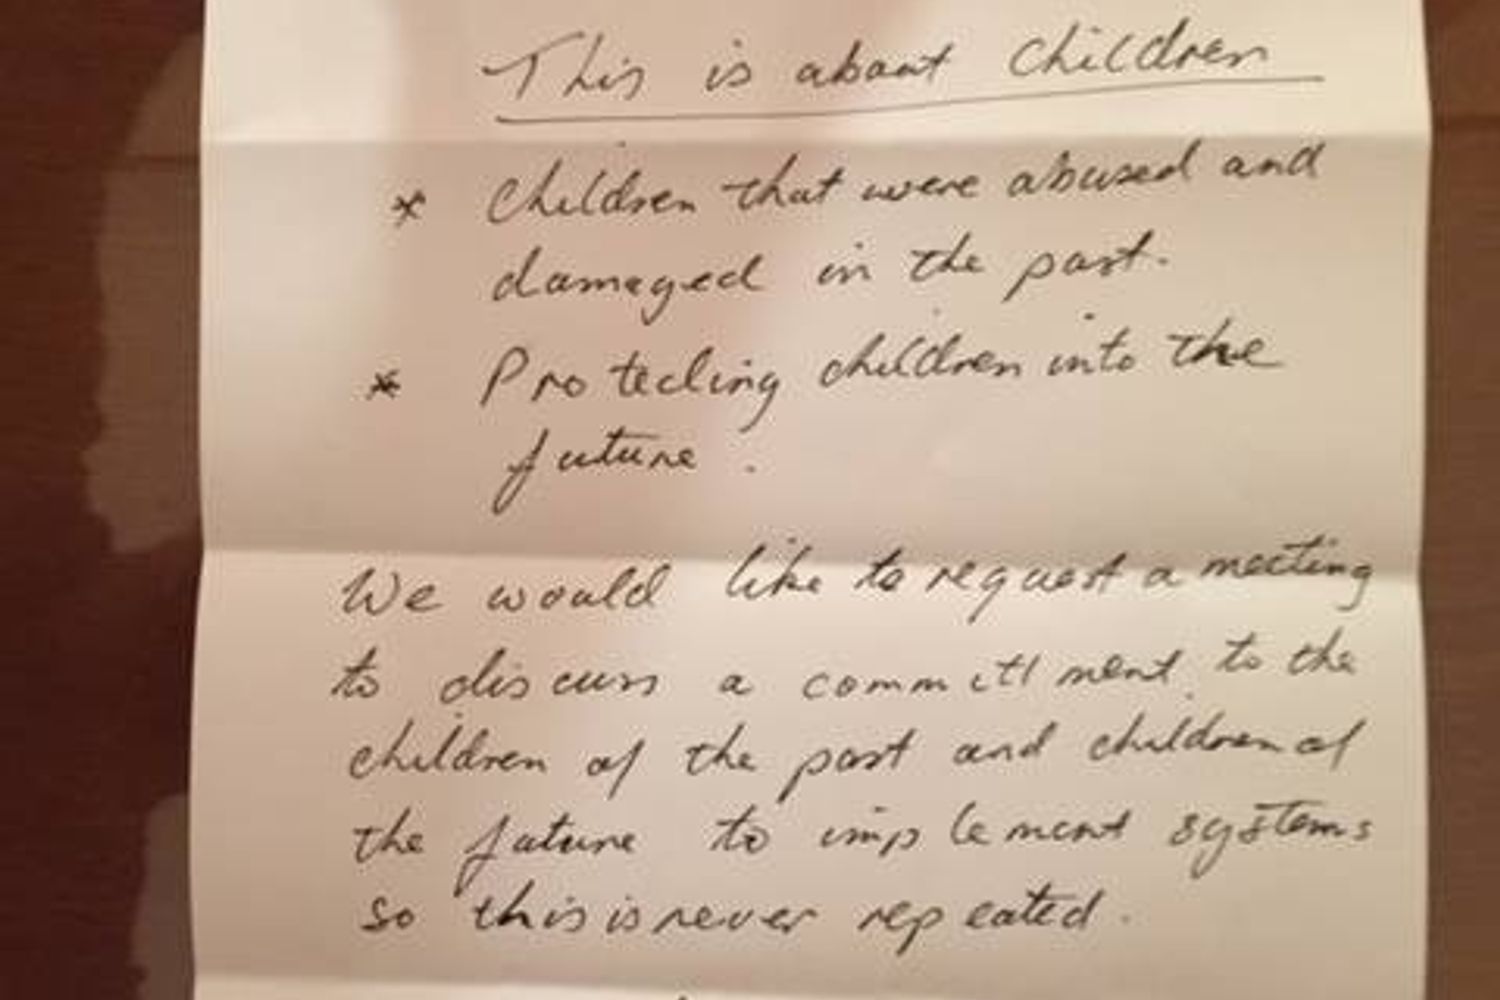 This is about children
* Children that were abused and
damaged in the past.
* Protecting children into the
future.
We would like to request a meeting
to discuss a committment to the
children of the past and children of
the future to implement systems
so this is never repeated.